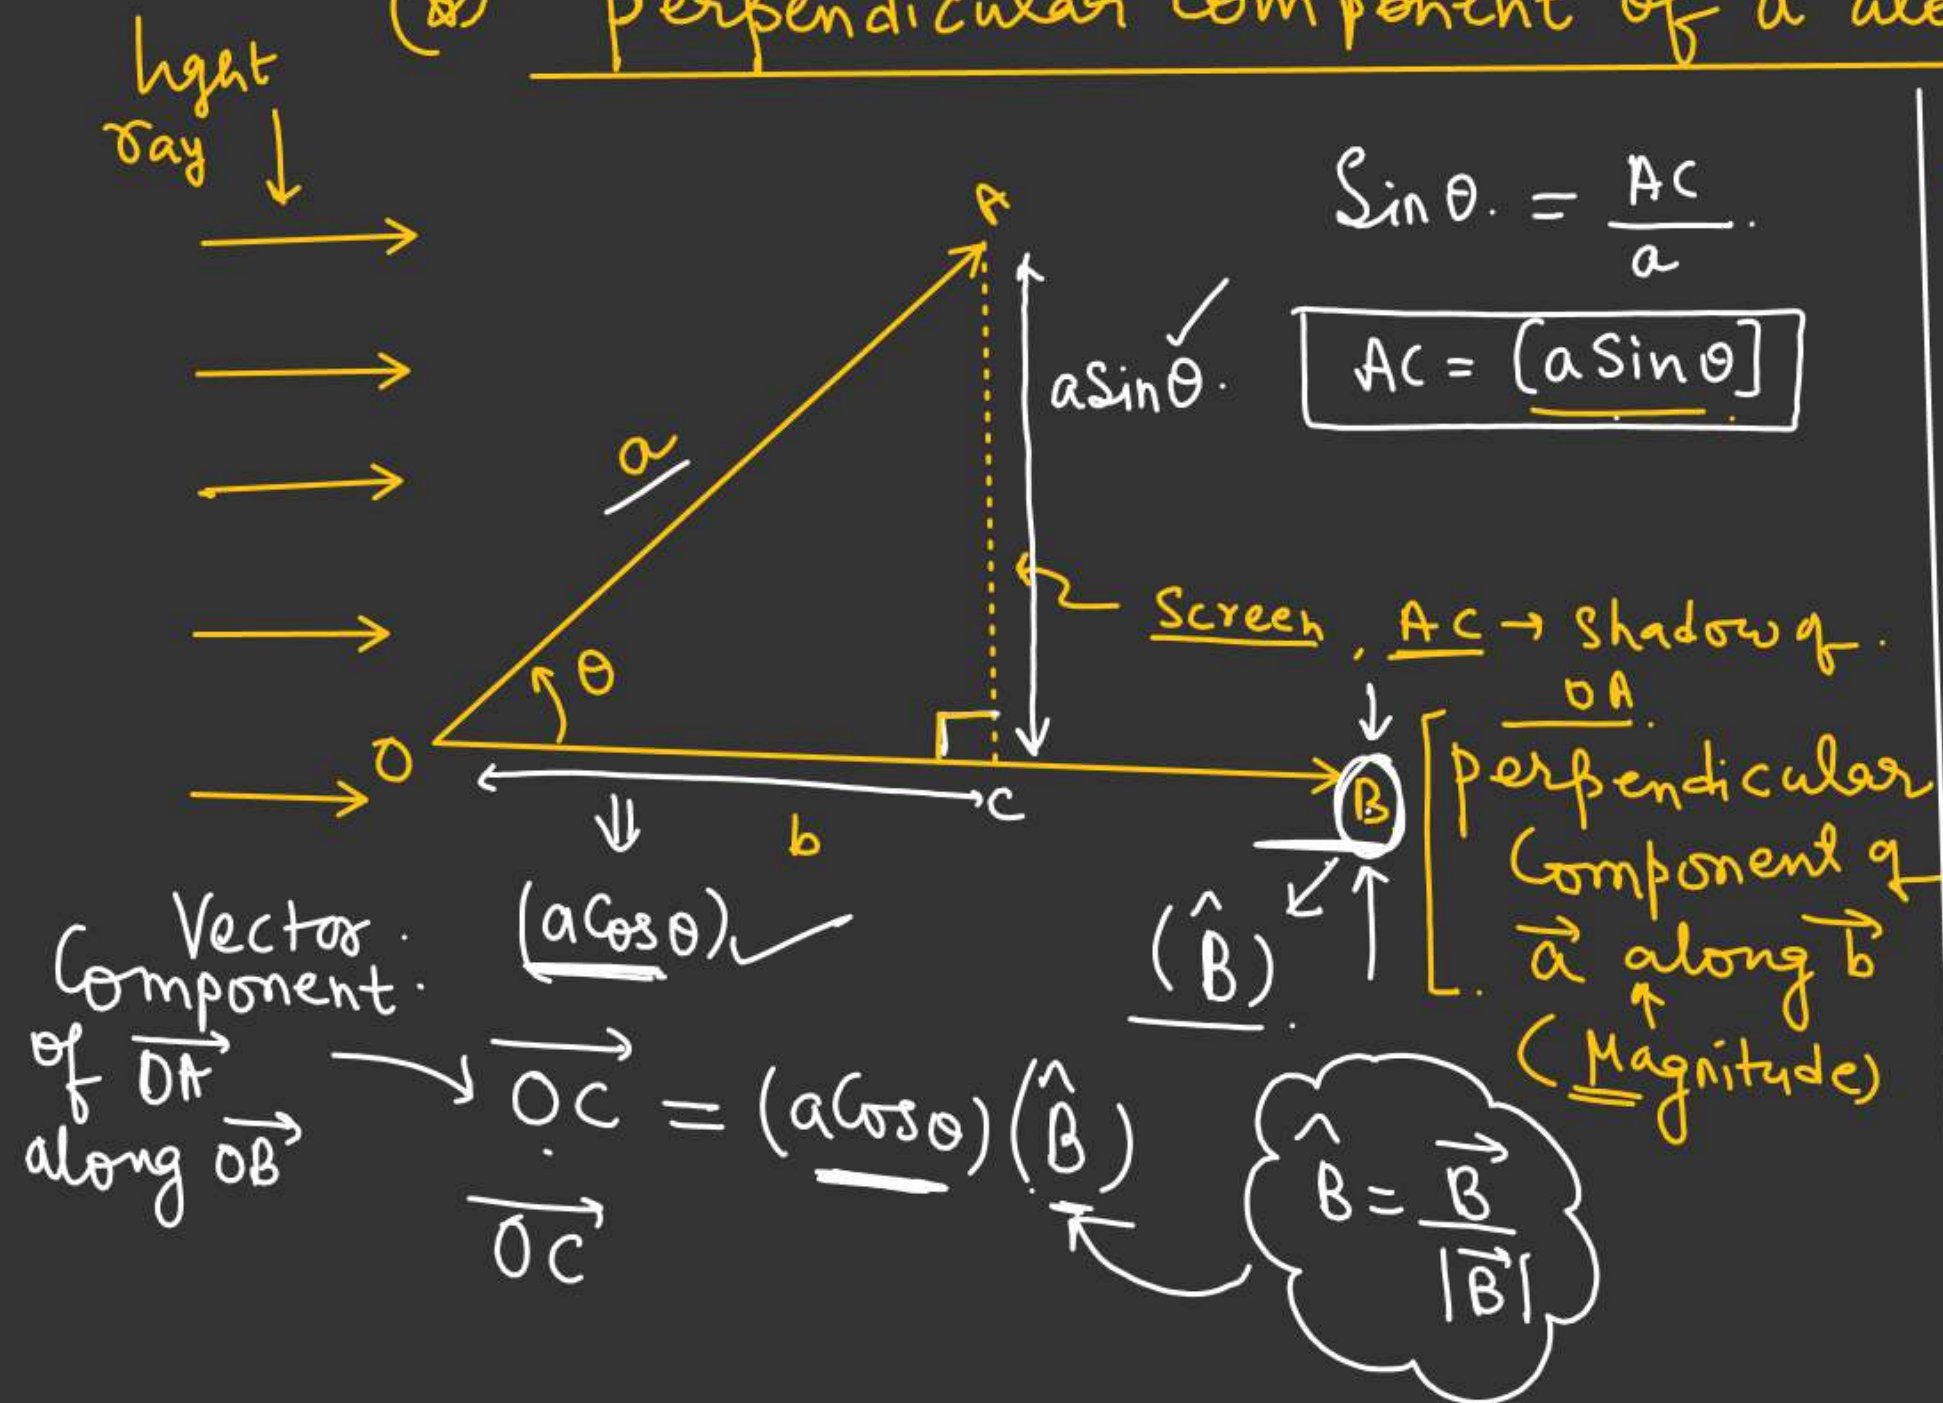 (*) perpendicular component of a
light
ray
A
Sinθ. = AC / a.
AC = [a Sinθ]
aSinθ.
a
Screen, AC → Shadow of.
OA.
θ
O
C
b
B
perpendicular
Component of
a⃗ along b⃗
(Magnitude)
(B̂).
(aCosθ)
Vector.
Component.
of OA⃗
along OB⃗
OC⃗ = (aCosθ)(B̂)
OC⃗
B̂ = B⃗ / |B⃗|